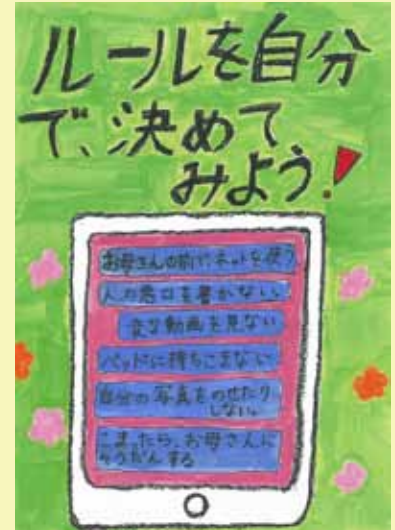 ルールを自分
で、決めて
みよう!
お母さんの前で、ネットを使う
人の悪口を書かない。
変な動画を見ない
ベッドに持ちこまない
自分の写真をのせたり
しない。
こまったら、お母さんに
そうだんする